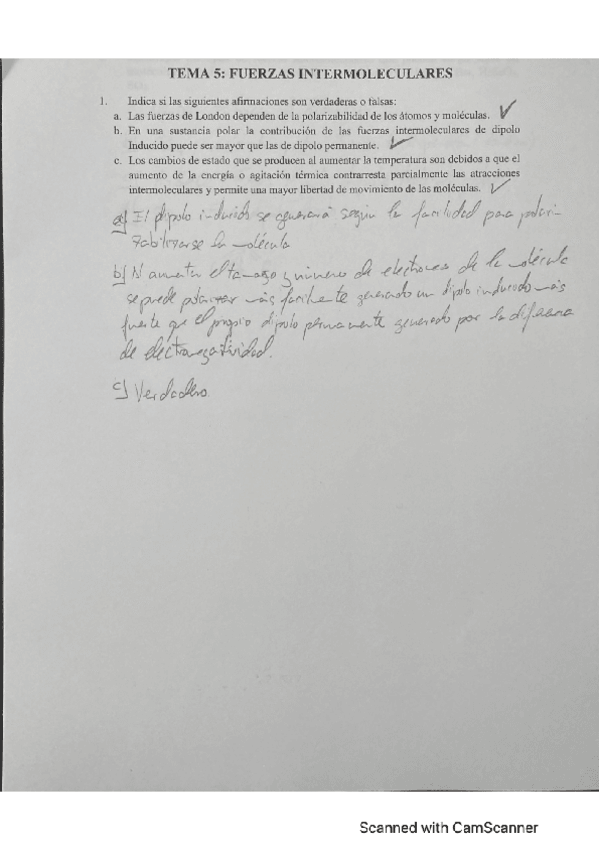 TEMA 5: FUERZAS INTERMOLECULARES
1. Indica si las siguientes afirmaciones son verdaderas o falsas:
a. Las fuerzas de London dependen de la polarizabilidad de los átomos y moléculas.
b. En una sustancia polar la contribución de las fuerzas intermoleculares de dipolo
Inducido puede ser mayor que las de dipolo permanente.
c. Los cambios de estado que se producen al aumentar la temperatura son debidos a que el
aumento de la energía o agitación térmica contrarresta parcialmente las atracciones
intermoleculares y permite una mayor libertad de movimiento de las moléculas.
a) El dipolo inducido se generará según la facilidad para polari-
zabilizarse la molécula
b) Al aumentar el tamaño y número de electrones de la molécula
se puede polarizar más facilmente generando un dipolo inducido más
fuerte que el propio dipolo permanente generado por la diferencia
de electronegatividad.
c) Verdadero.
Scanned with CamScanner